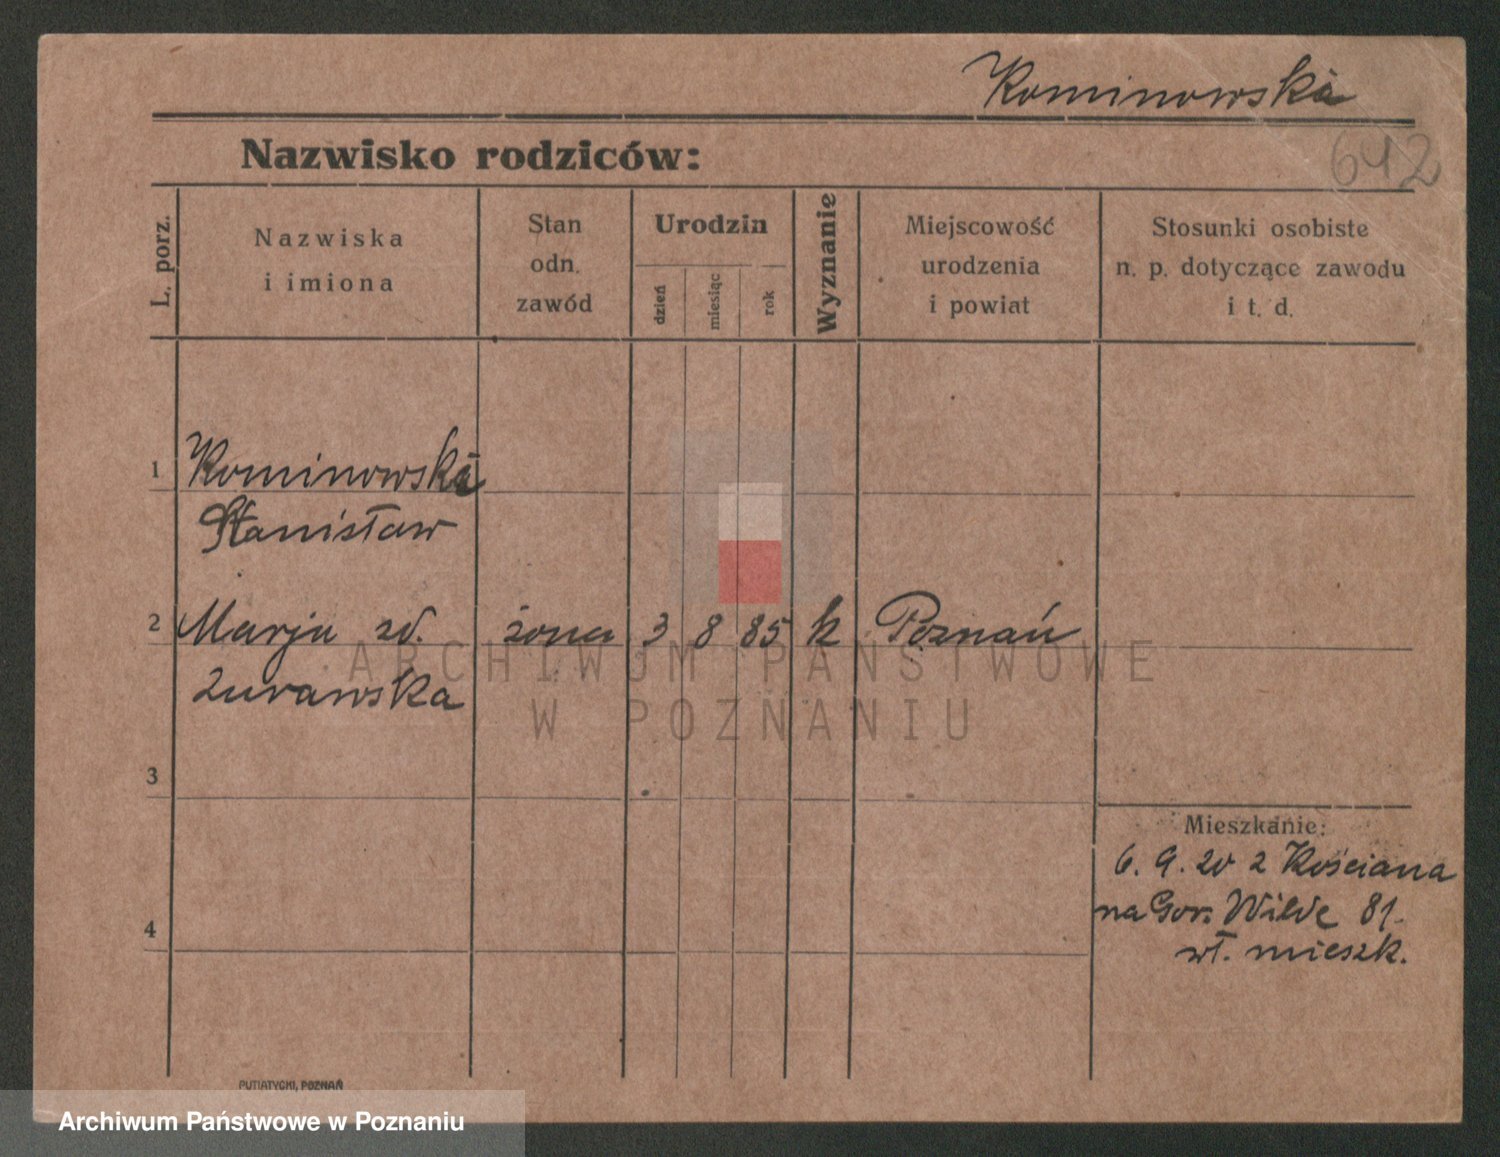 Kominowska
642
Nazwisko rodziców:
L. porz.
Nazwiska
i imiona
Stan
odn.
zawód
Urodzin
dzień
miesiąc
rok
Wyznanie
Miejscowość
urodzenia
i powiat
Stosunki osobiste
n. p. dotyczące zawodu
i t. d.
1 Kominowska
Stanisław
2 Marja zd. żona 3 8 85 k Poznań
Żurawska
ARCHIWUM PAŃSTWOWE
W POZNANIU
3
Mieszkanie:
6. 9. 20 z Kościana
na Gór. Wilde 81
4
wł. mieszk.
PUTIATYCKI, POZNAŃ
Archiwum Państwowe w Poznaniu